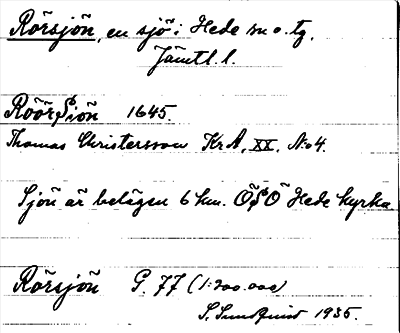 Rörsjön, en sjö i Hede sn o. tg,
Jämtl. l.
RöörSiön 1645.
Thomas Christersson KrA, XX, No 4.
Sjön är belägen 6 km. ÖSÖ Hede kyrka
Rörsjön G. 77 (1:200.000)
S. Sundquist 1935.